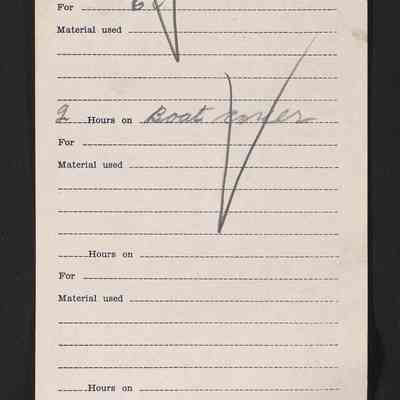 For
Material used
2 Hours on Boat cover
For
Material used
Hours on
For
Material used
Hours on